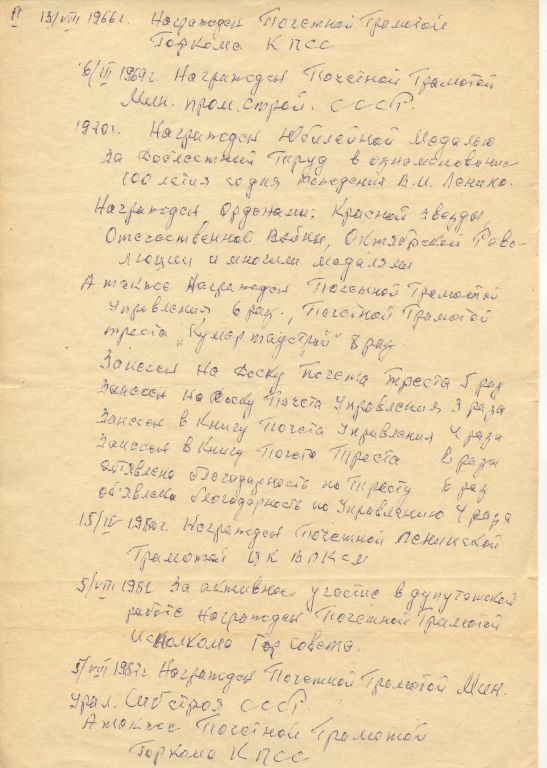 13/VIII 1966г. Награжден Почетной Грамотой
Горкома КПСС
6/III 1969г. Награжден Почетной Грамотой
Мин. пром. строй. СССР.
1970г. Награжден Юбилейной Медалью
За Доблестный Труд в ознаменование
100 летия со дня рождения В.И. Ленина.
Награжден Орденами: Красной звезды,
Отечественной Войны, Октябрской Рево-
люции и многими медалями
А также Награжден Почетной Грамотой
Управления 6 раз., Почетной Грамотой
треста 8 раз.
Занесен на Доску Почета Треста 5 раз
Занесен на Доску Почета Управления 3 раза
Занесен в Книгу Почета Управления 4 раза
Занесен в Книгу Почета Треста раза
объявлена благодарность по Тресту 6 раз
объявлена благодарность по Управлению 4 раза
15/IV 1980г. Награжден Почетной Ленинской
Грамотой ЦК ВЛКСМ
5/VIII За активное участие в депутатской
работе Награжден Почетной Грамотой
Исполкома Гор совета.
Награжден Почетной Грамотой Мин.
Урал. Сибстроя СССР.
А также Почетной Грамотой
Горкома КПСС